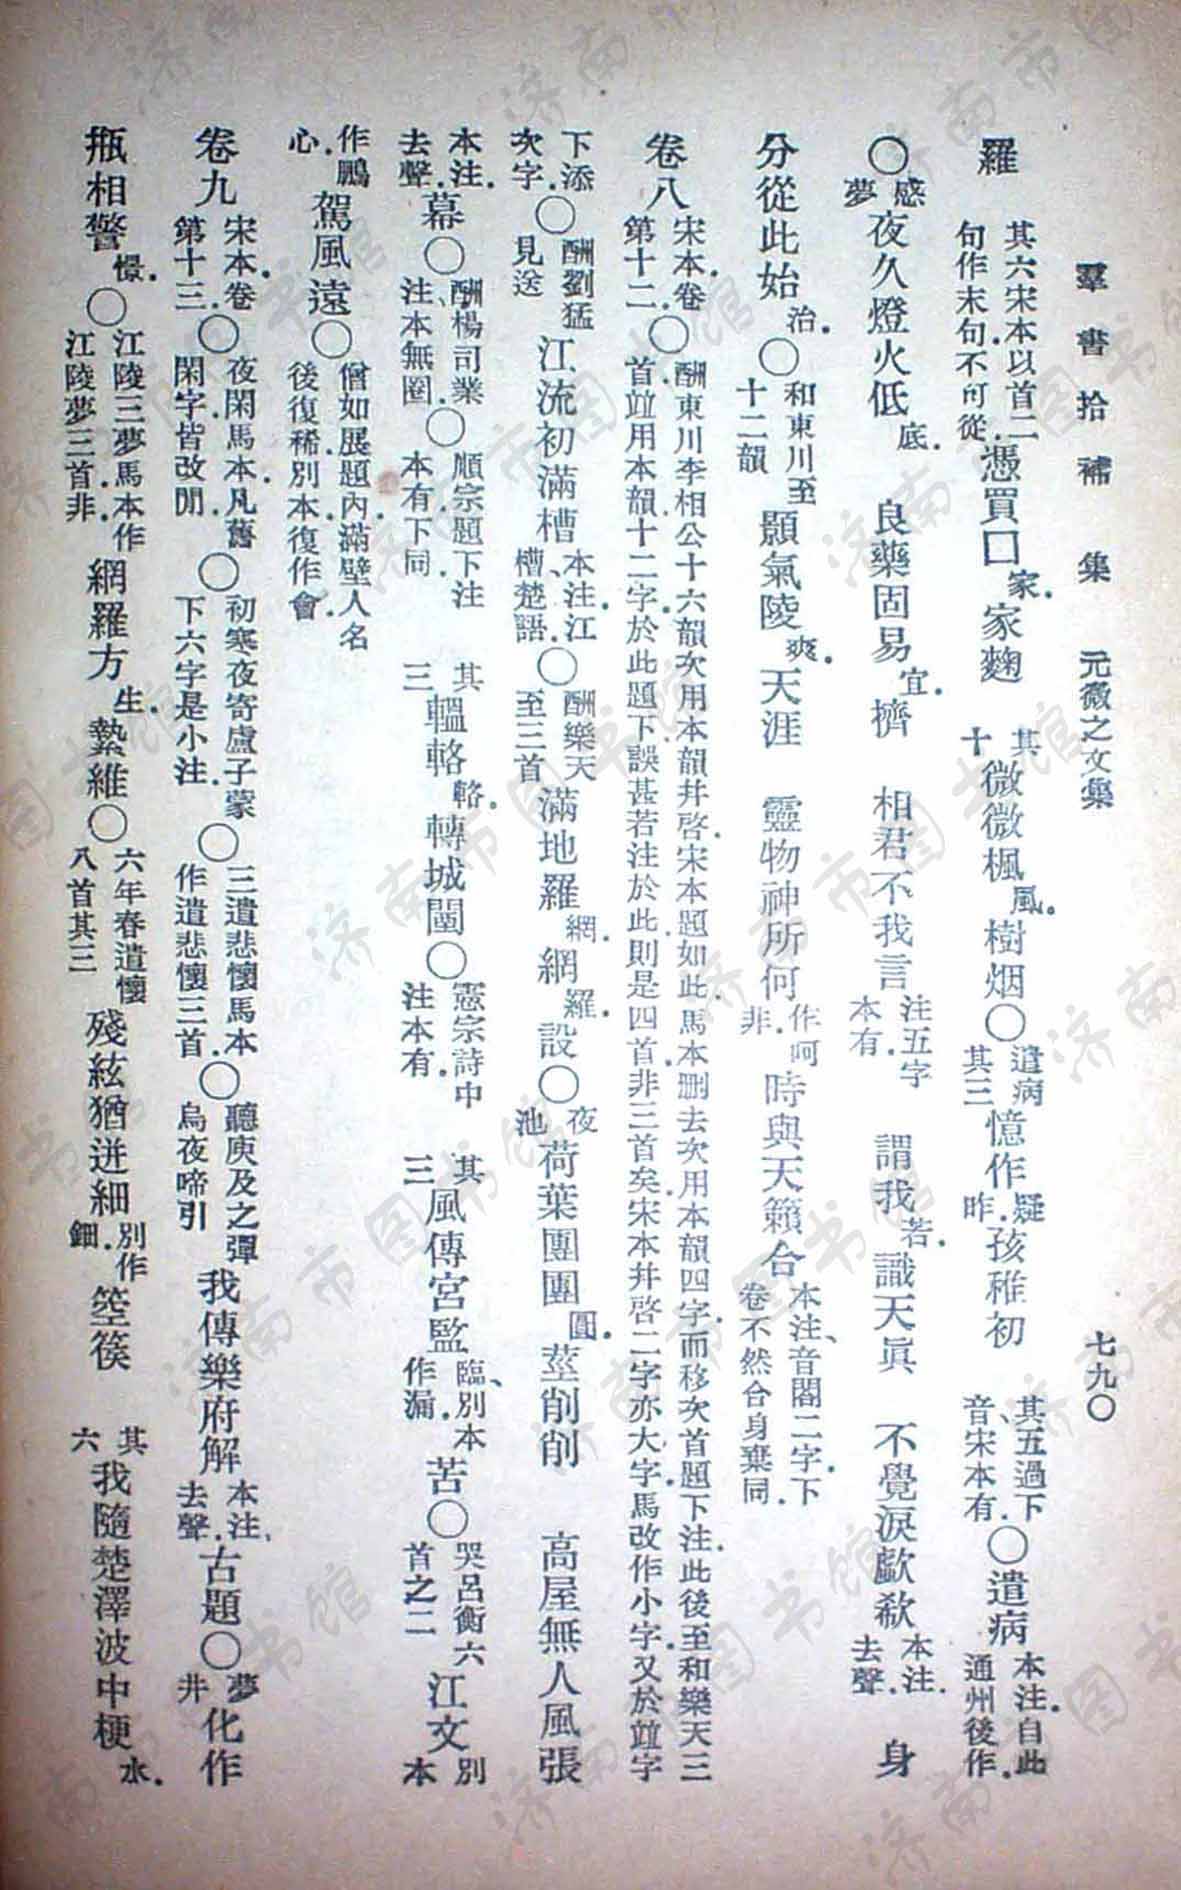 羣書拾補集 元微之文集 七九〇
羅 其六宋本以首二句作末句不可從. 憑買口 家. 家麴 其十 微微楓 風. 樹烟〇 遣病其三 憶作 疑昨. 孩稚初 其五過下音、宋本有. 〇遣病 本注.自此通州後作.
〇 感夢 夜久燈火低 底. 良藥固易 宜. 擠 相君不我言 注五字本有. 謂我 若. 識天眞 不覺淚歔欷 本注.去聲. 身
分從此始 治. 〇 和東川至十二韻 顥氣陵 爽. 天涯 靈物神所何 作呵非. 時與天籟合 本注、音閤二字.下卷不然合身棄同.
卷八 宋本.卷第十二. 〇 酬東川李相公十六韻次用本韻幷啓.宋本題如此.馬本刪去次用本韻四字.而移次首題下注.此後至和樂天三首.竝用本韻十二字.於此題下.誤甚若注於此.則是四首.非三首矣.宋本幷啓二字亦大字.馬改作小字.又於竝字
下添次字. 〇 酬劉猛見送 江流初滿槽 本注.江槽楚語. 〇 酬樂天至三首 滿地羅 網. 網 羅. 設〇 夜池 荷葉團團 圓. 莖削削 高屋無人風張
本注.去聲. 幕〇 酬楊司業注、本無圈. 〇 順宗題下注本有.下同. 其三 轀輅 輅. 轉城闉〇 憲宗詩中注本有. 其三 風傳宮監 臨、別本作漏. 苦〇 哭呂衡六首之二 江文 別本
作鵬心. 駕風遠〇 僧如展題內滿壁人名後復稀.別本復作會.
卷九 宋本.卷第十三. 〇 夜閑馬本.凡舊閑字皆改閒. 〇 初寒夜寄盧子蒙下六字是小注. 〇 三遣悲懷馬本作遣悲懷三首. 〇 聽庾及之彈烏夜啼引 我傳樂府解 本注、去聲. 古題〇 夢井 化作
瓶相警 憬. 〇 江陵三夢馬本作江陵夢三首.非. 網羅方 生. 縶維〇 六年春遣懷八首其三 殘絃猶迸細 別作鈿. 箜篌 其六 我隨楚澤波中梗 水.